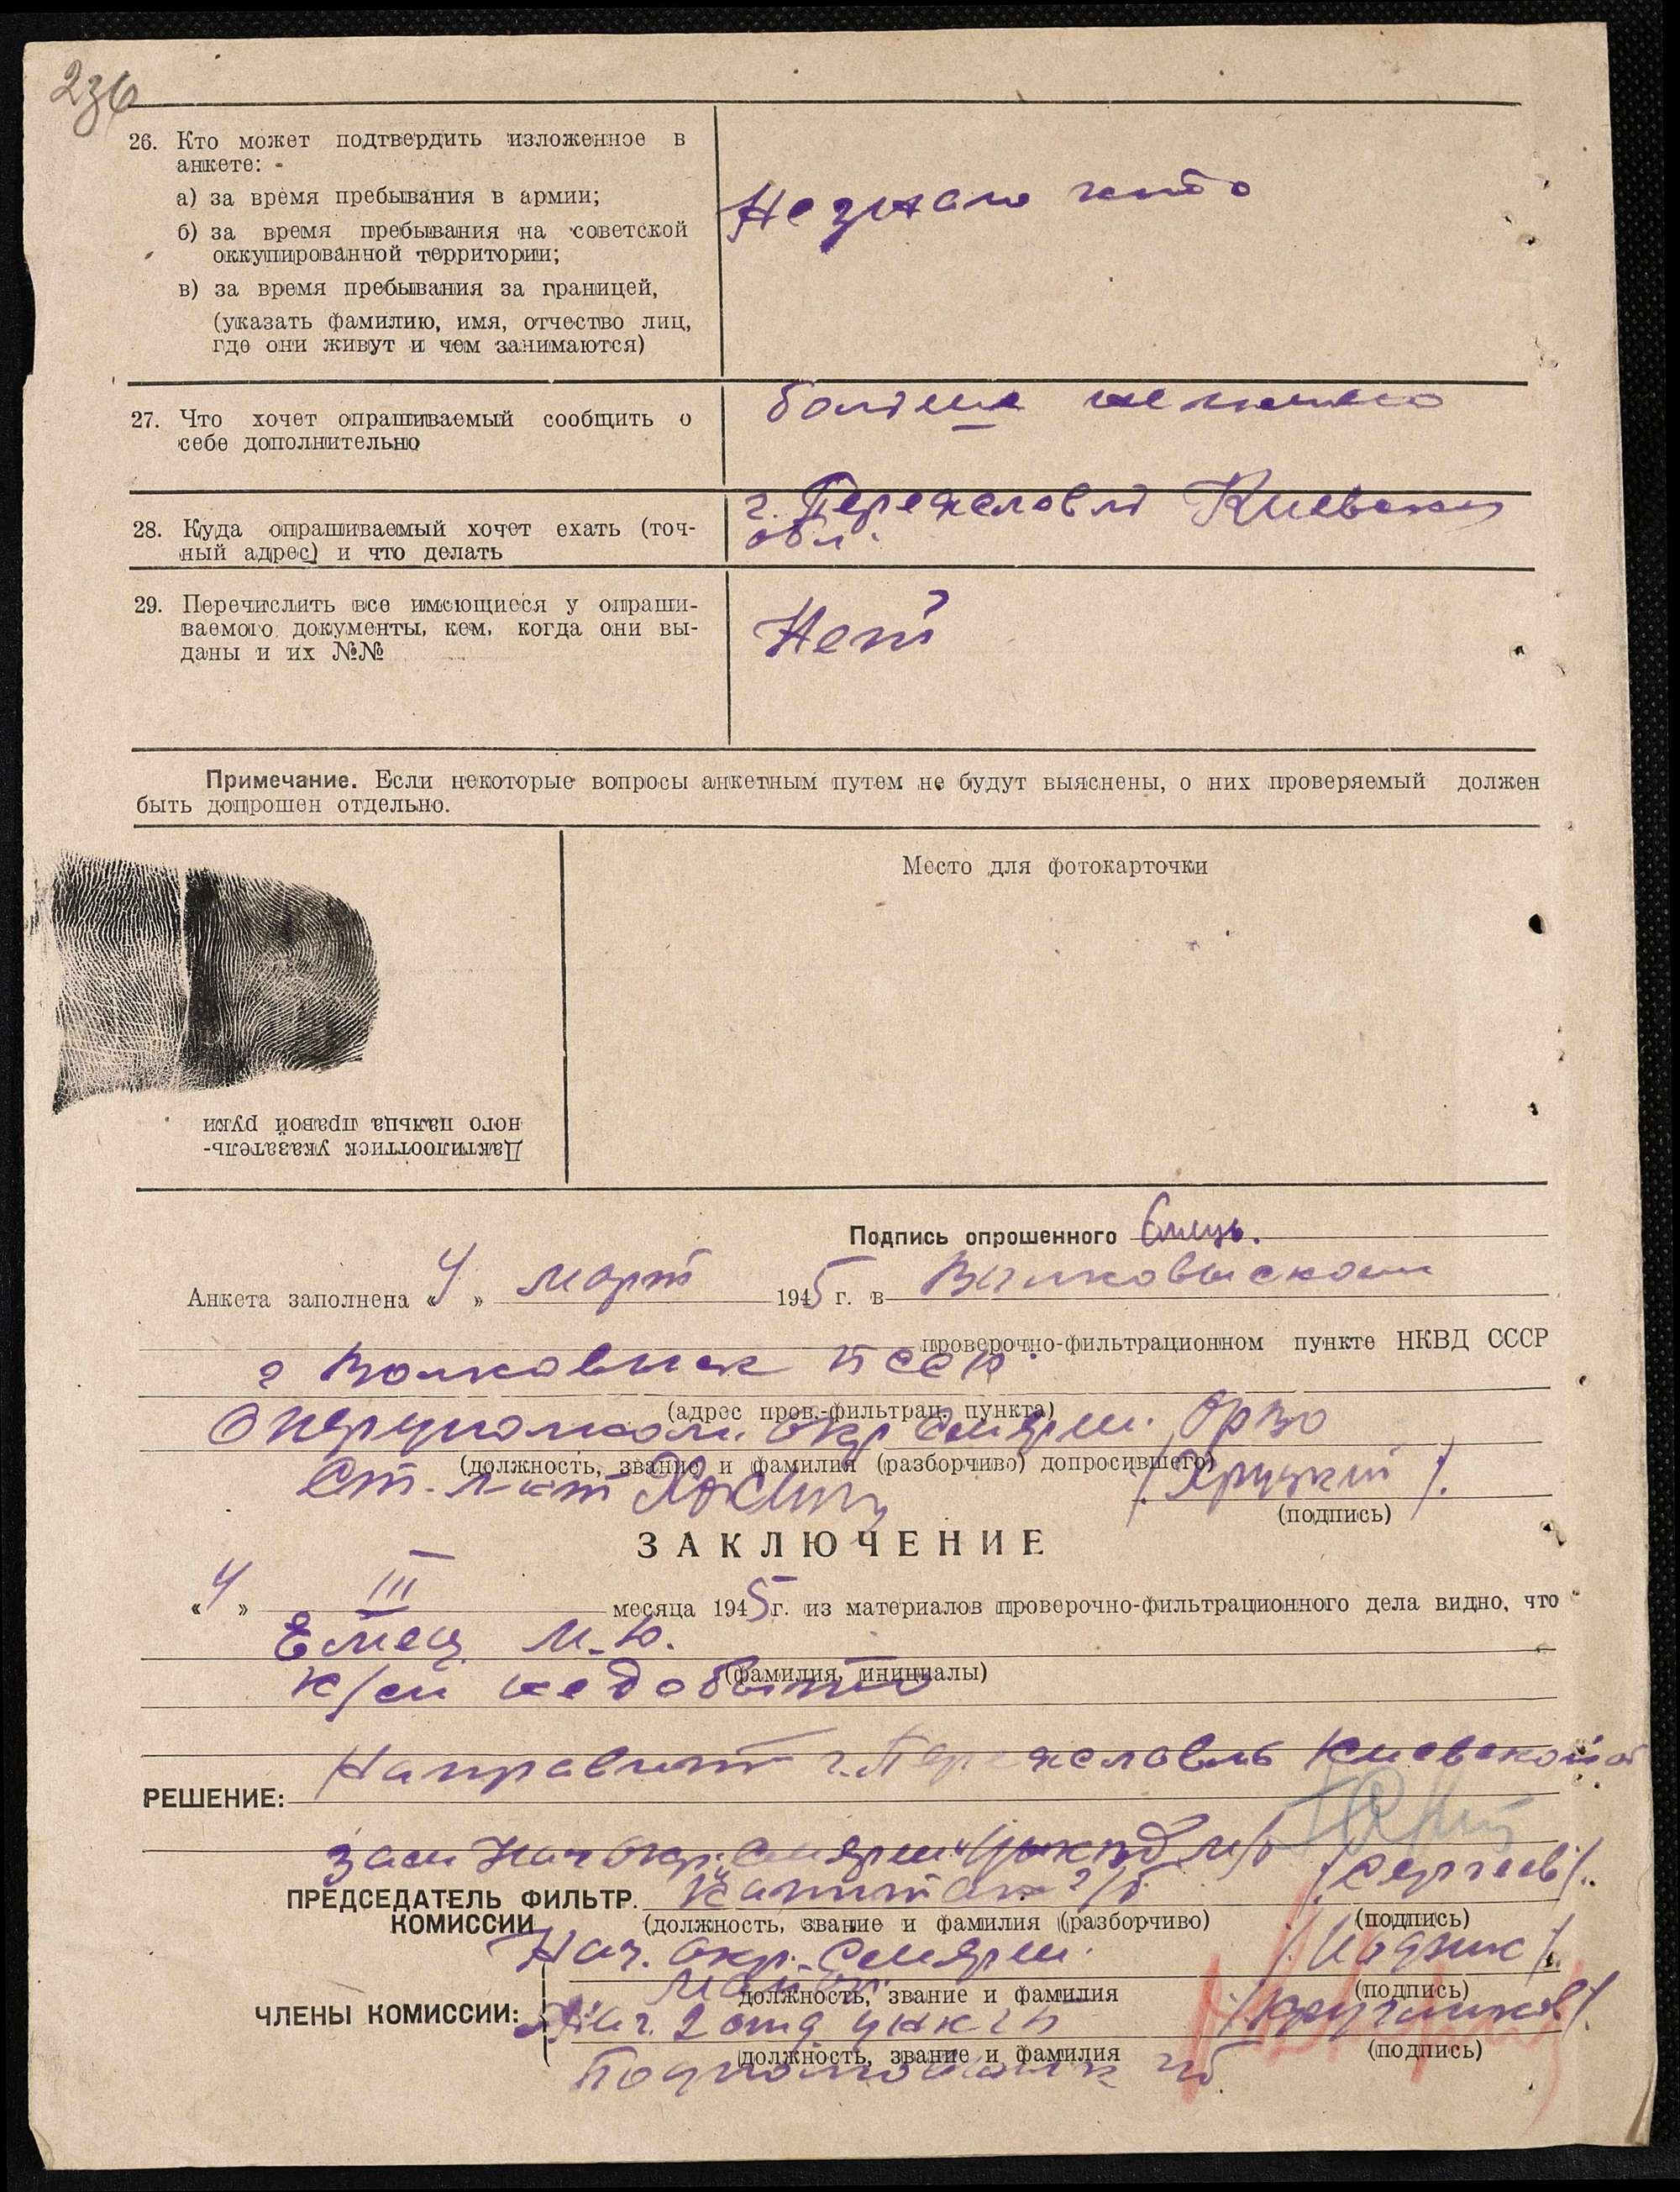 236
26. Кто может подтвердить изложенное в
анкете:
а) за время пребывания в армии;
б) за время пребывания на советской
оккупированной территории;
в) за время пребывания за границей,
(указать фамилию, имя, отчество лиц,
где они живут и чем занимаются)
Не знаю кто
27. Что хочет опрашиваемый сообщить о
себе дополнительно
больше не
28. Куда опрашиваемый хочет ехать (точ-
ный адрес) и что делать
г. Переяславль Киевской
обл.
29. Перечислить все имеющиеся у опраши-
ваемого документы, кем, когда они вы-
даны и их №№
Нет
Примечание. Если некоторые вопросы анкетным путем не будут выяснены, о них проверяемый должен
быть допрошен отдельно.
Место для фотокарточки
Дактилооттиск указатель-
ного пальца правой руки
Подпись опрошенного Ємець.
Анкета заполнена «4» март 1945 г. в Волковыском
проверочно-фильтрационном пункте НКВД СССР
г Волковыск БССР
(адрес пров.-фильтрац. пункта)
Оперуполном. окр Смерш.
(должность, звание и фамилия (разборчиво) допросившего)
Ст. л-т /Хруцкий/.
(подпись)
ЗАКЛЮЧЕНИЕ
«4» III месяца 1945 г. из материалов проверочно-фильтрационного дела видно, что
Емец М.Ю.
(фамилия, инициалы)
к/м не добыто
Направить г. Переяславль Киевской об
РЕШЕНИЕ:
зам Нач окр. Смерш
ПРЕДСЕДАТЕЛЬ ФИЛЬТР.
КОМИССИИ
Капитан г/б /Сергеев/.
(должность, звание и фамилия (разборчиво) (подпись)
Нач. окр. Смерш.
должность, звание и фамилия (подпись)
ЧЛЕНЫ КОМИССИИ:
Нач. 2 отд
должность, звание и фамилия (подпись)
гб